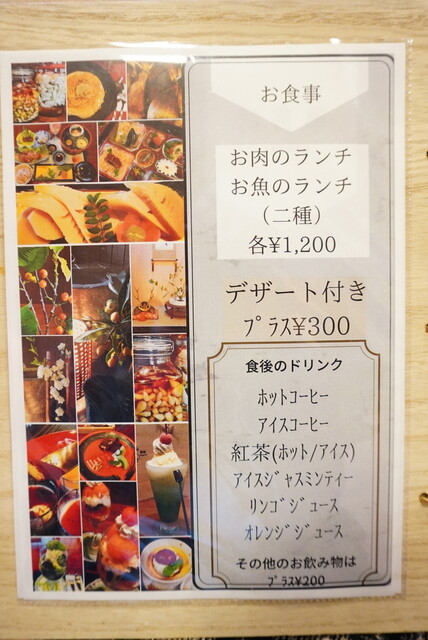 お食事
お肉のランチ
お魚のランチ
（二種）
各¥1,200
デザート付き
ﾌﾟﾗｽ¥300
食後のドリンク
ﾎｯﾄｺｰﾋｰ
ｱｲｽｺｰﾋｰ
紅茶(ﾎｯﾄ/ｱｲｽ)
ｱｲｽｼﾞｬｽﾐﾝﾃｨｰ
ﾘﾝｺﾞｼﾞｭｰｽ
ｵﾚﾝｼﾞｼﾞｭｰｽ
その他のお飲み物は
ﾌﾟﾗｽ¥200